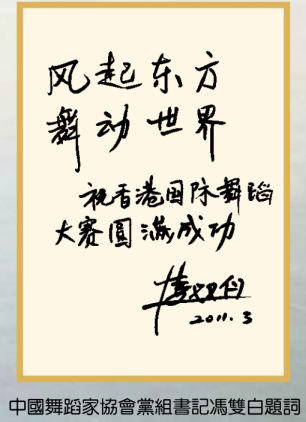 风起东方
舞动世界
祝香港国际舞蹈
大赛圆满成功
2011.3
中國舞蹈家協會黨組書記馮雙白題詞